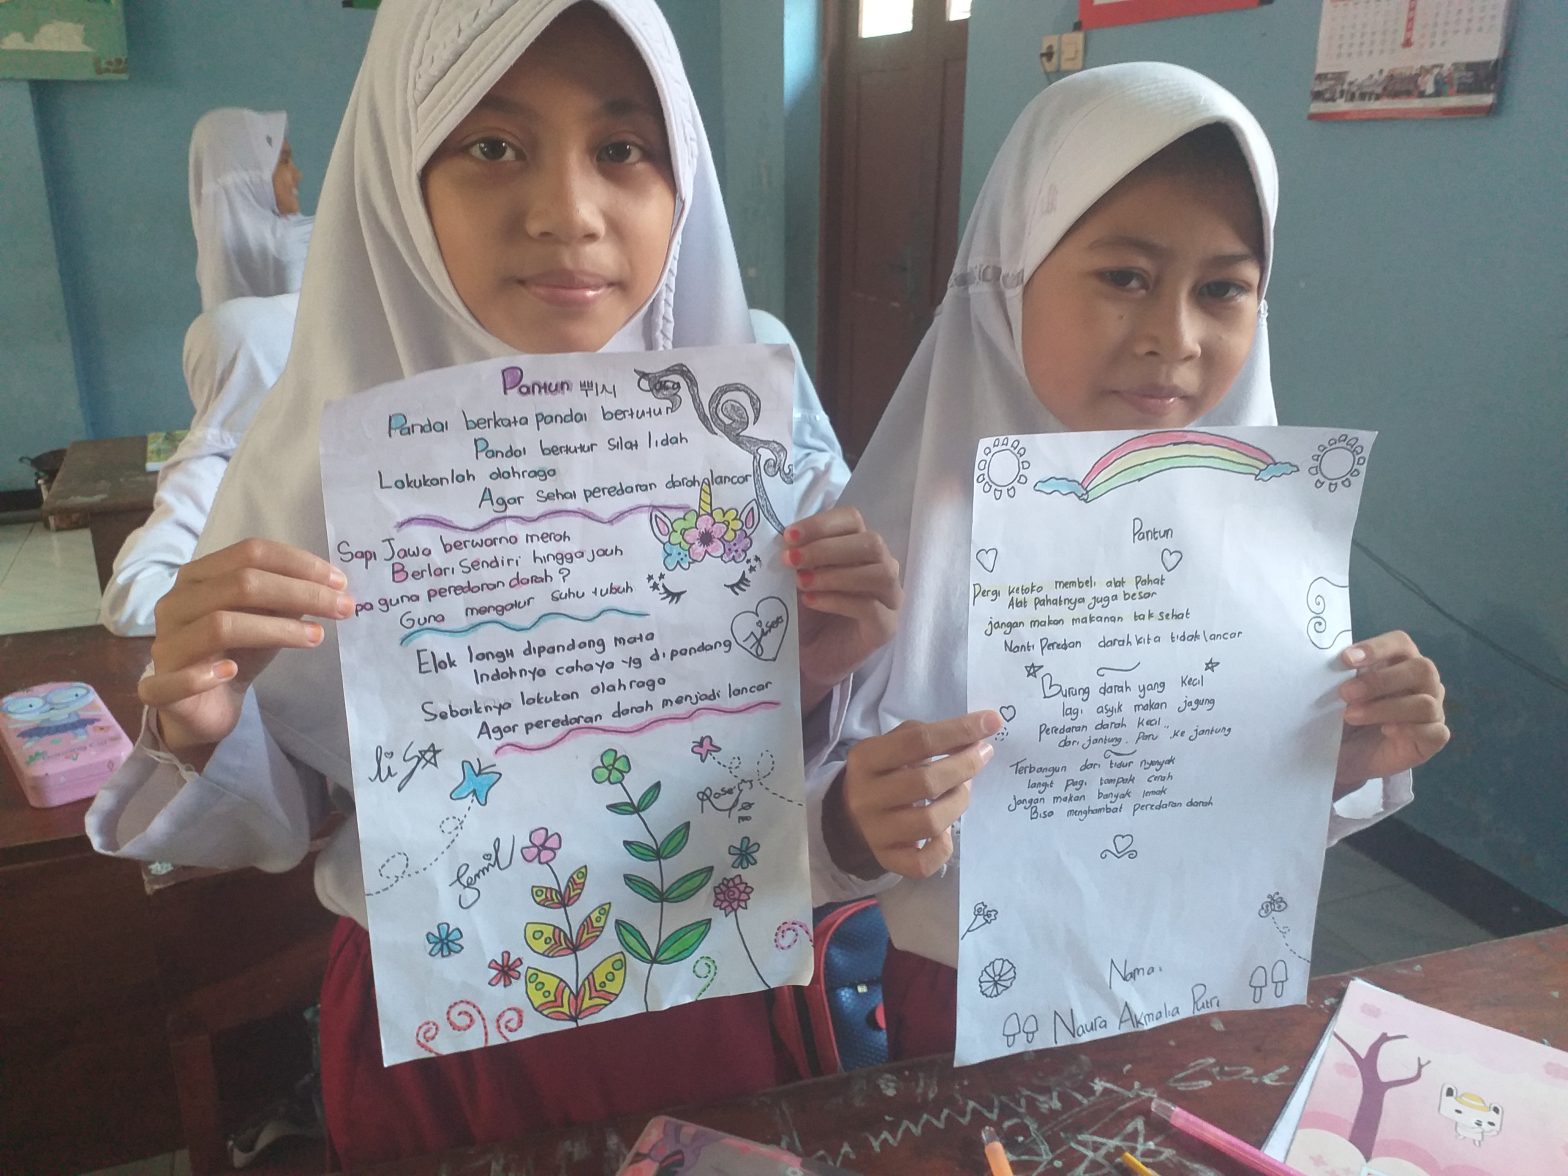 Pantun
Pandai berkata pandai bertutur
Pandai bertutur Silat lidah
Lakukanlah olahraga
Agar sehat peredaran darah lancar
Sapi Jawa berwarna merah
Berlari Sendiri hingga jauh
pa guna peredaran darah?
Guna mengatur Suhu tubuh
Elok langit dipandang mata
Indahnya cahaya yg di pandang
Sebaiknya lakukan olahraga
Agar peredaran darah menjadi lancar
Pantun
Pergi ketoko membeli alat Pahat
Alat pahatnya juga besar
jangan makan makanan tak sehat
Nanti Peredan darah kita tidak lancar
Burung darah yang Kecil
lagi asyik makan jagung
Peredaran darah Kecil
dari jantung Paru, ke jantung
Terbangun dari tidur nyenyak
langit pagi tampak cerah
Jangan makan banyak lemak
Bisa menghambat peredaran darah
Nama:
Naura Akmalia Putri